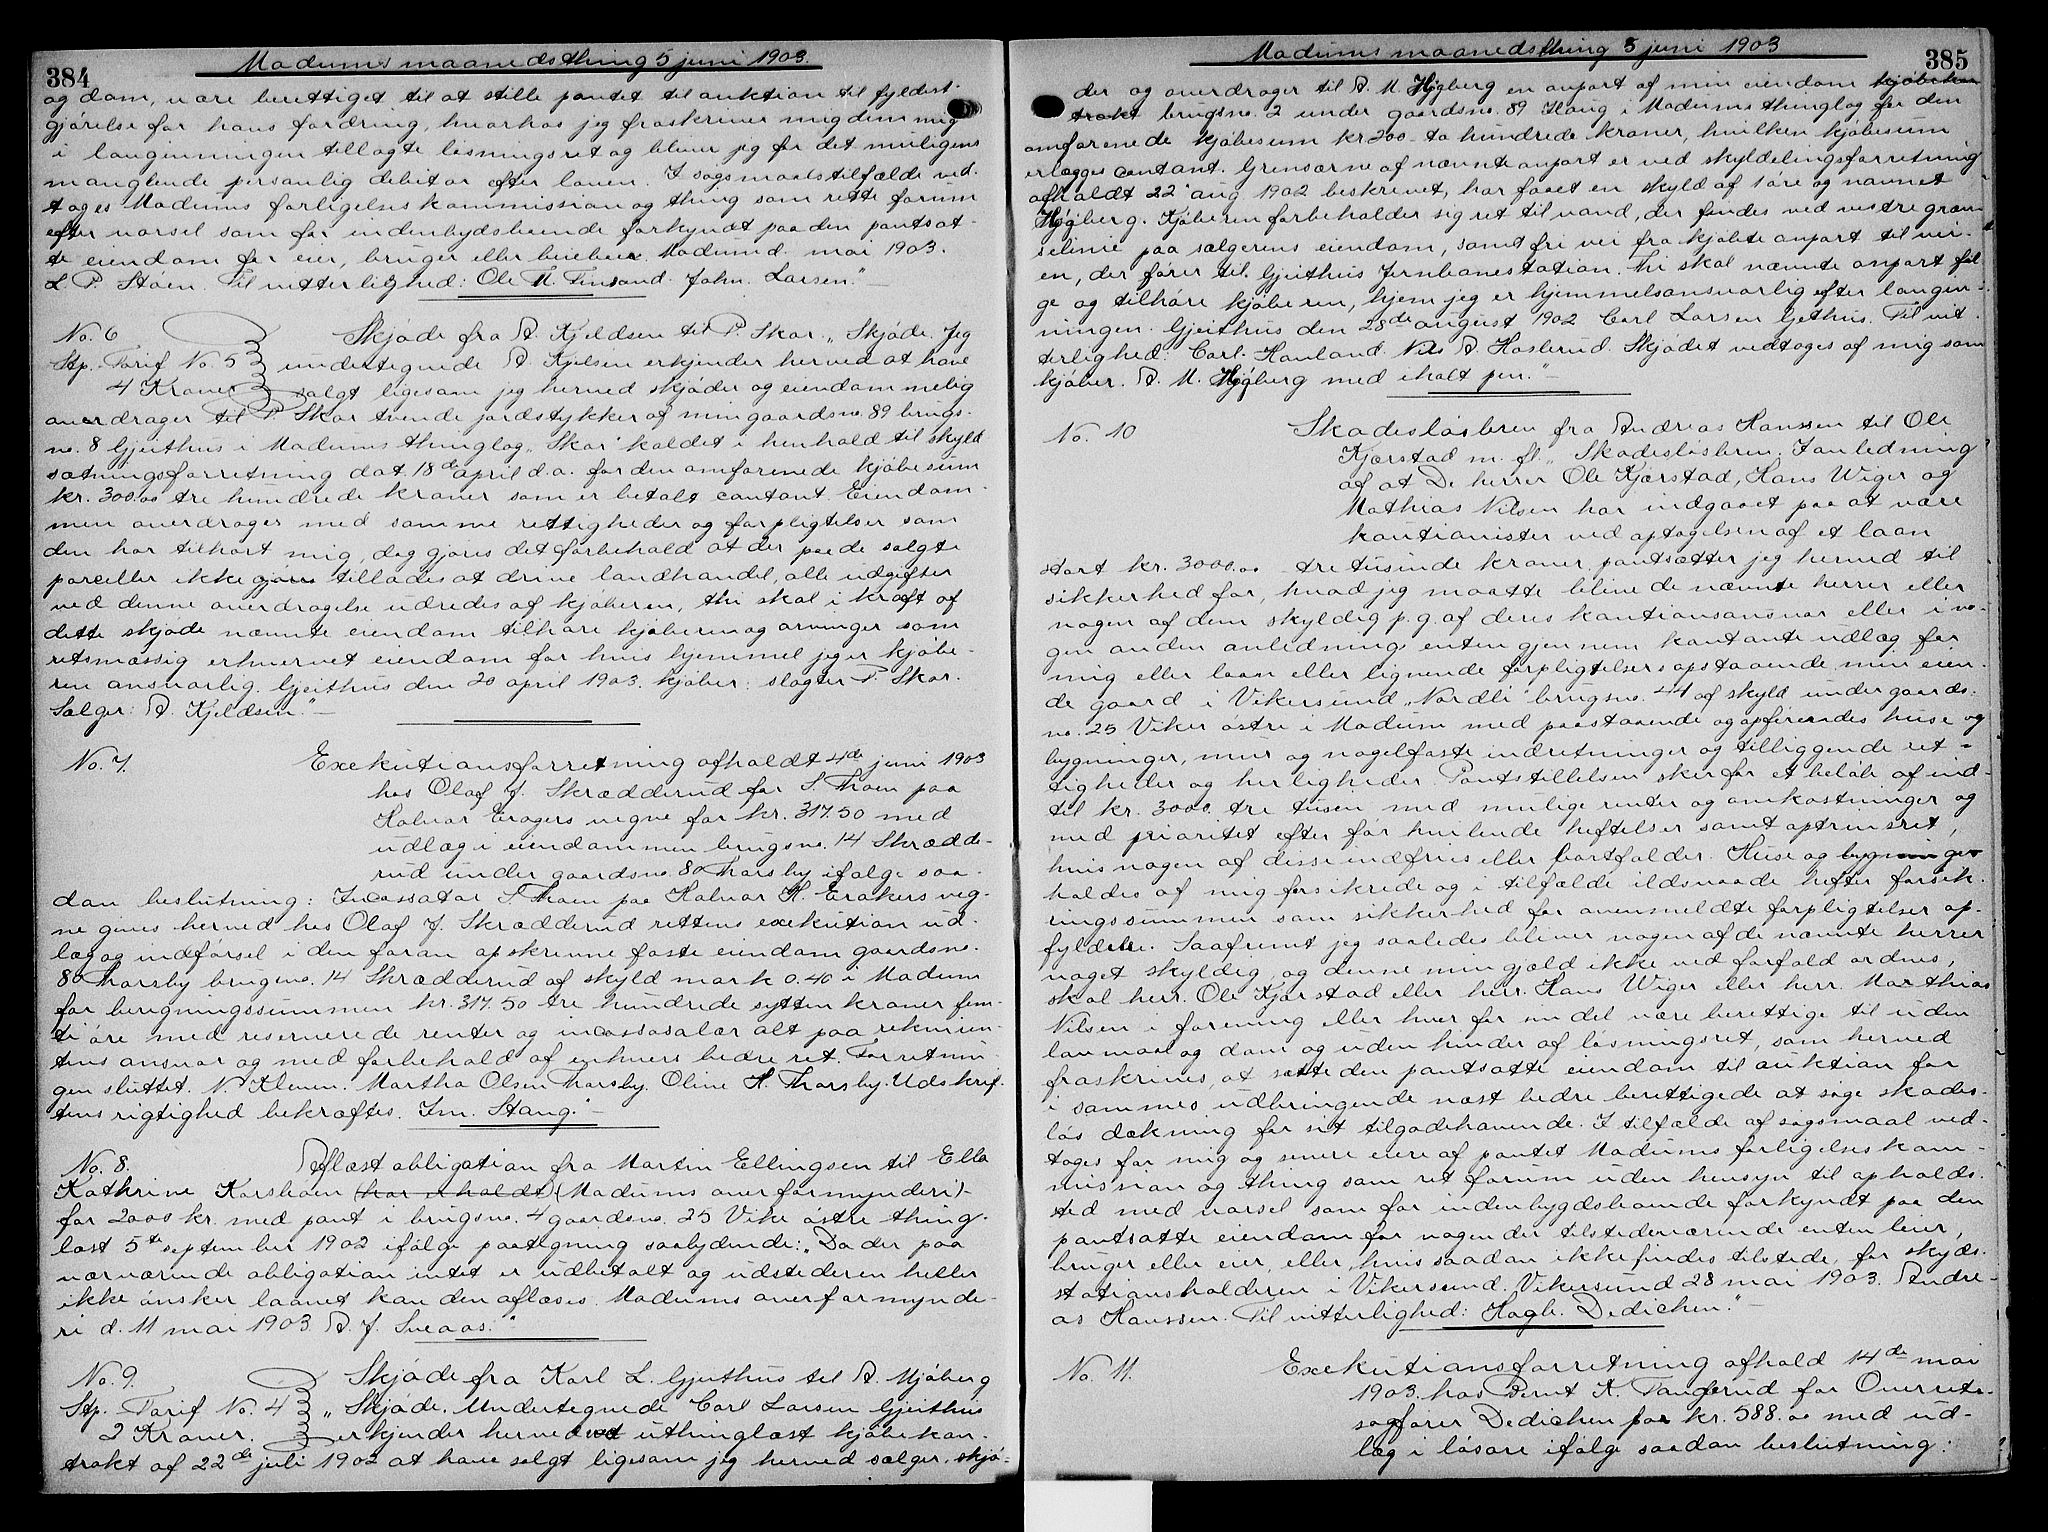 384
Modums maanedsthing 5 juni 1903.
og dom, være berettiget til at stille pantet til auktion til fyldest-
gjørelse for hans fordring, hvorhos jeg fraskriver mig den mig
i lovgivningen tillagte løsningsret og bliver jeg for det muligens
manglende personlig debitor efter loven. I sogsmaalstilfælde ved-
tages Modums forligelseskommission og thing som rette forum
efter varsel som for indenbydsboende forkyndt paa den pantsat-
te eiendom for eier, bruger eller beieboer. Modum d. mai 1903.
L P. Støen. Til vitterlighed: Ole M. Finsand. John. Larsen."
No. 6 Skjøde fra A. Kjeldsen til P. Skar. „Skjøde. Jeg
Stp. Tarif No. 5 undertegnede A. Kjelsen erkjender herved at have
4 Kroner solgt ligesom jeg herved skjøder og eiendommelig
overdrager til P. Skar tvende jordstykker af min gaardsno. 89 brugs-
no. 8 Gjeithus i Modums thinglag „Skar" kaldet i henhold til skyld
sætningsforretning dat. 18de april d.a. for den omforenede kjøbesum
kr. 300.00 tre hundrede kroner som er betalt contant. Eiendom-
men overdrages med samme rettigheder og forpligtelser som
den har tilhørt mig, dog gjøres det forbehold at der paa de solgte
parceller ikke gjøres tillades at drive landhandel, alle udgifter
ved denne overdragelse udredes af kjøberen, thi skal i kraft af
dette skjøde nævnte eiendom tilhøre kjøberen og arvinger som
retsmæssig erhvervet eiendom for hvis hjemmel jeg er kjøbe-
ren ansvarlig. Gjeithus den 20 april 1903. kjøber: slagter P. Skar.
Sælger: A. Kjeldsen."
No. 7. Exekutionsforretning afholdt 4de juni 1903
hos Olaf J. Skrædderud for S. Thoen paa
Halvor Eragers vegne for kr. 317.50 med
udlæg i eiendommen brugsno. 14 Skrædde-
rud under gaardsno. 80 Thorsby ifølge saa-
dan beslutning: Incassator S. Thoen paa Halvor H. Erakers veg-
ne gives herved hos Olaf J. Skrædderud rettens exekution ud-
læg og indførsel i den foran opskrevne faste eiendom gaardsno.
80 Thorsby brugsno. 14 Skrædderud af skyld mark 0.40 i Modum
for beregningssummen kr. 317.50 tre hundrede sytten kroner fem-
ti øre med reserverede renter og incassosalær alt paa rekviren-
tens ansvar og med forbehold af enhvers bedre ret. Forretnin-
gen sluttet. N. Kleven. Martha Olsen Thorsby. Oline H. Thorsby. Udskrif-
tens rigtighed bekræftes. Im. Stang."
No. 8. Aflæst obligation fra Martin Ellingsen til Ella
Kathrine Korsboen (har erholdt) (Modums overformynderi)-
for 2000 kr. med pant i brugsno. 4 gaardsno. 25 Vike østre thing-
læst 5te september 1902 ifølge paategning saalydende: „Da der paa
nærværende obligation intet er udbetalt og udstederen heller
ikke ønsker laanet kan den aflæses. Modums overformynde-
ri d. 11 mai 1903. A. J. Sveaas."
No. 9. Skjøde fra Karl L. Gjeithus til A. Mjøberg
Stp. Tarif No. 4 „Skjøde. Undertegnede Carl Larsen Gjeithus
2 Kroner. erkjender herved ved uthinglæst kjøbekon-
trakt af 22de juli 1902 at have solgt ligesom jeg herved sælger, skjø-
385
Modums maanedsthing 5 juni 1903
der og overdrager til A. M Højberg en anpart af min eiendom kjøbekon
trakt brugsno. 2 under gaardsno. 89 Haug i Modums thinglag for den
omforenede kjøbesum kr 200 - to hundrede kroner, hvilken kjøbesum
erlægges contant. Grensærne af nævnte anpart er ved skyldelingsforretning
afholdt 22 aug 1902 beskrevet, har faaet en skyld af 1 øre og navnet
Højberg. Kjøberen forbeholder sig ret til vand, der findes ved vestre græn-
selinie paa sælgerens eiendom, samt fri vei fra kjøbte anpart til vei-
en, der fører til Gjeithus Jernbanestation. Thi skal nævnte anpart føl-
ge og tilhøre kjøberen, hjem jeg er hjemmelsansvarlig efter lovgiv-
ningen. Gjeithus den 28de august 1902 Carl Larsen Gethus. Til vit-
terlighed: Carl. Hovland. Nils A. Haslerud. Skjødet vedtages af mig som
kjøber. A. M. Højberg med iholt pen."
No. 10 Skadesløsbrev fra Andreas Hanssen til Ole
Kjørstad m. fl. „Skadesløsbrev. I anledning
af at De herrer Ole Kjørstad, Hans Wiger og
Mathias Nilsen har indgaaet paa at være
kautionister ved optagelsen af et laan
stort kr. 3000.00 - tre tusinde kroner pantsætter jeg herved til
sikkerhed for, hvad jeg maatte blive de nævnte herrer eller
nogen af dem skyldig p.g. af deres kautionsansvar eller i no-
gen anden anledning enten gjennem kontante udlæg for
mig eller laan eller lignende forpligtelsers opstaaende, min eien-
de gaard i Vikersund „Nordli" brugsno. 44 af skyld under gaards-
no. 25 Viker østre i Modum med paastaaende og opførendes huse og
bygninger, mur og nagelfaste indretninger og tilliggende ret-
tigheder og herligheder. Pantstillelsen sker for et beløb af ind-
til kr. 3000. tre tusen med mulige renter og omkostninger og
med prioritet efter før hvilende heftelser samt optrinsret,
hvis nogen af disse indfries eller bortfalder. Huse og bygninger
holdes af mig forsikrede og i tilfælde ildsvaade hefter forsik-
ringssummen som sikkerhed for ovenmeldte forpligtelser op-
fyldelse. Saafremt jeg saaledes bliver nogen af de nævnte herrer
noget skyldig, og denne min gjæld ikke ved forfald ordnes,
skal herr. Ole Kjørstad eller herr. Hans Wiger eller herr. Mathias
Nilsen i forening eller hver for sin del være berettige til uden
lovmaal og dom og uden hinder af løsningsret, som herved
fraskrives, at sætte den pantsatte eiendom til auktion for
i sammes udbringende næst bedre berettigede at søge skades-
løs dækning for sit tilgodehavende. I tilfælde af søgsmaal ved-
tages for mig og senere eiere af pantet Modums forligelseskom-
mission og thing som ret forum uden hensyn til opholds-
sted med varsel som for indenbygdsboende forkyndt paa den
pantsatte eiendom for nogen der tilstedeværende enten leier,
bruger eller eier, eller, hvis saadan ikke findes tilstede, for skyds-
stationsholderen i Vikersund. Vikersund 28 mai 1903. Andre-
as Hanssen. Til vitterlighed: Hagb. Dedichen."
No. 11. Exekutionsforretning afhold 14de mai
1903 hos Bernt K. Tandberud for Overrets-
sagfører Dedichen for kr. 588.00 med ud-
læg i løsøre ifølge saadan beslutning: